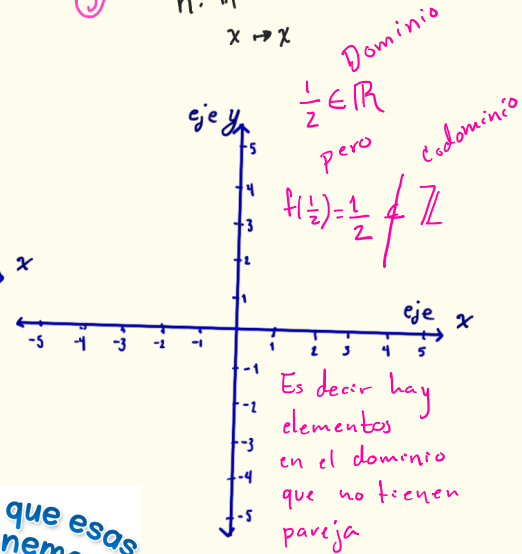 x ↦ x
Dominio
1/2 ∈ ℝ
pero
codominio
f(1/2)=1/2 ∉ ℤ
eje y
5
4
3
2
1
x
eje x
-5 -4 -3 -2 -1 1 2 3 4 5
-1
-2
-3
-4
-5
Es decir hay
elementos
en el dominio
que no tienen
pareja
que esas